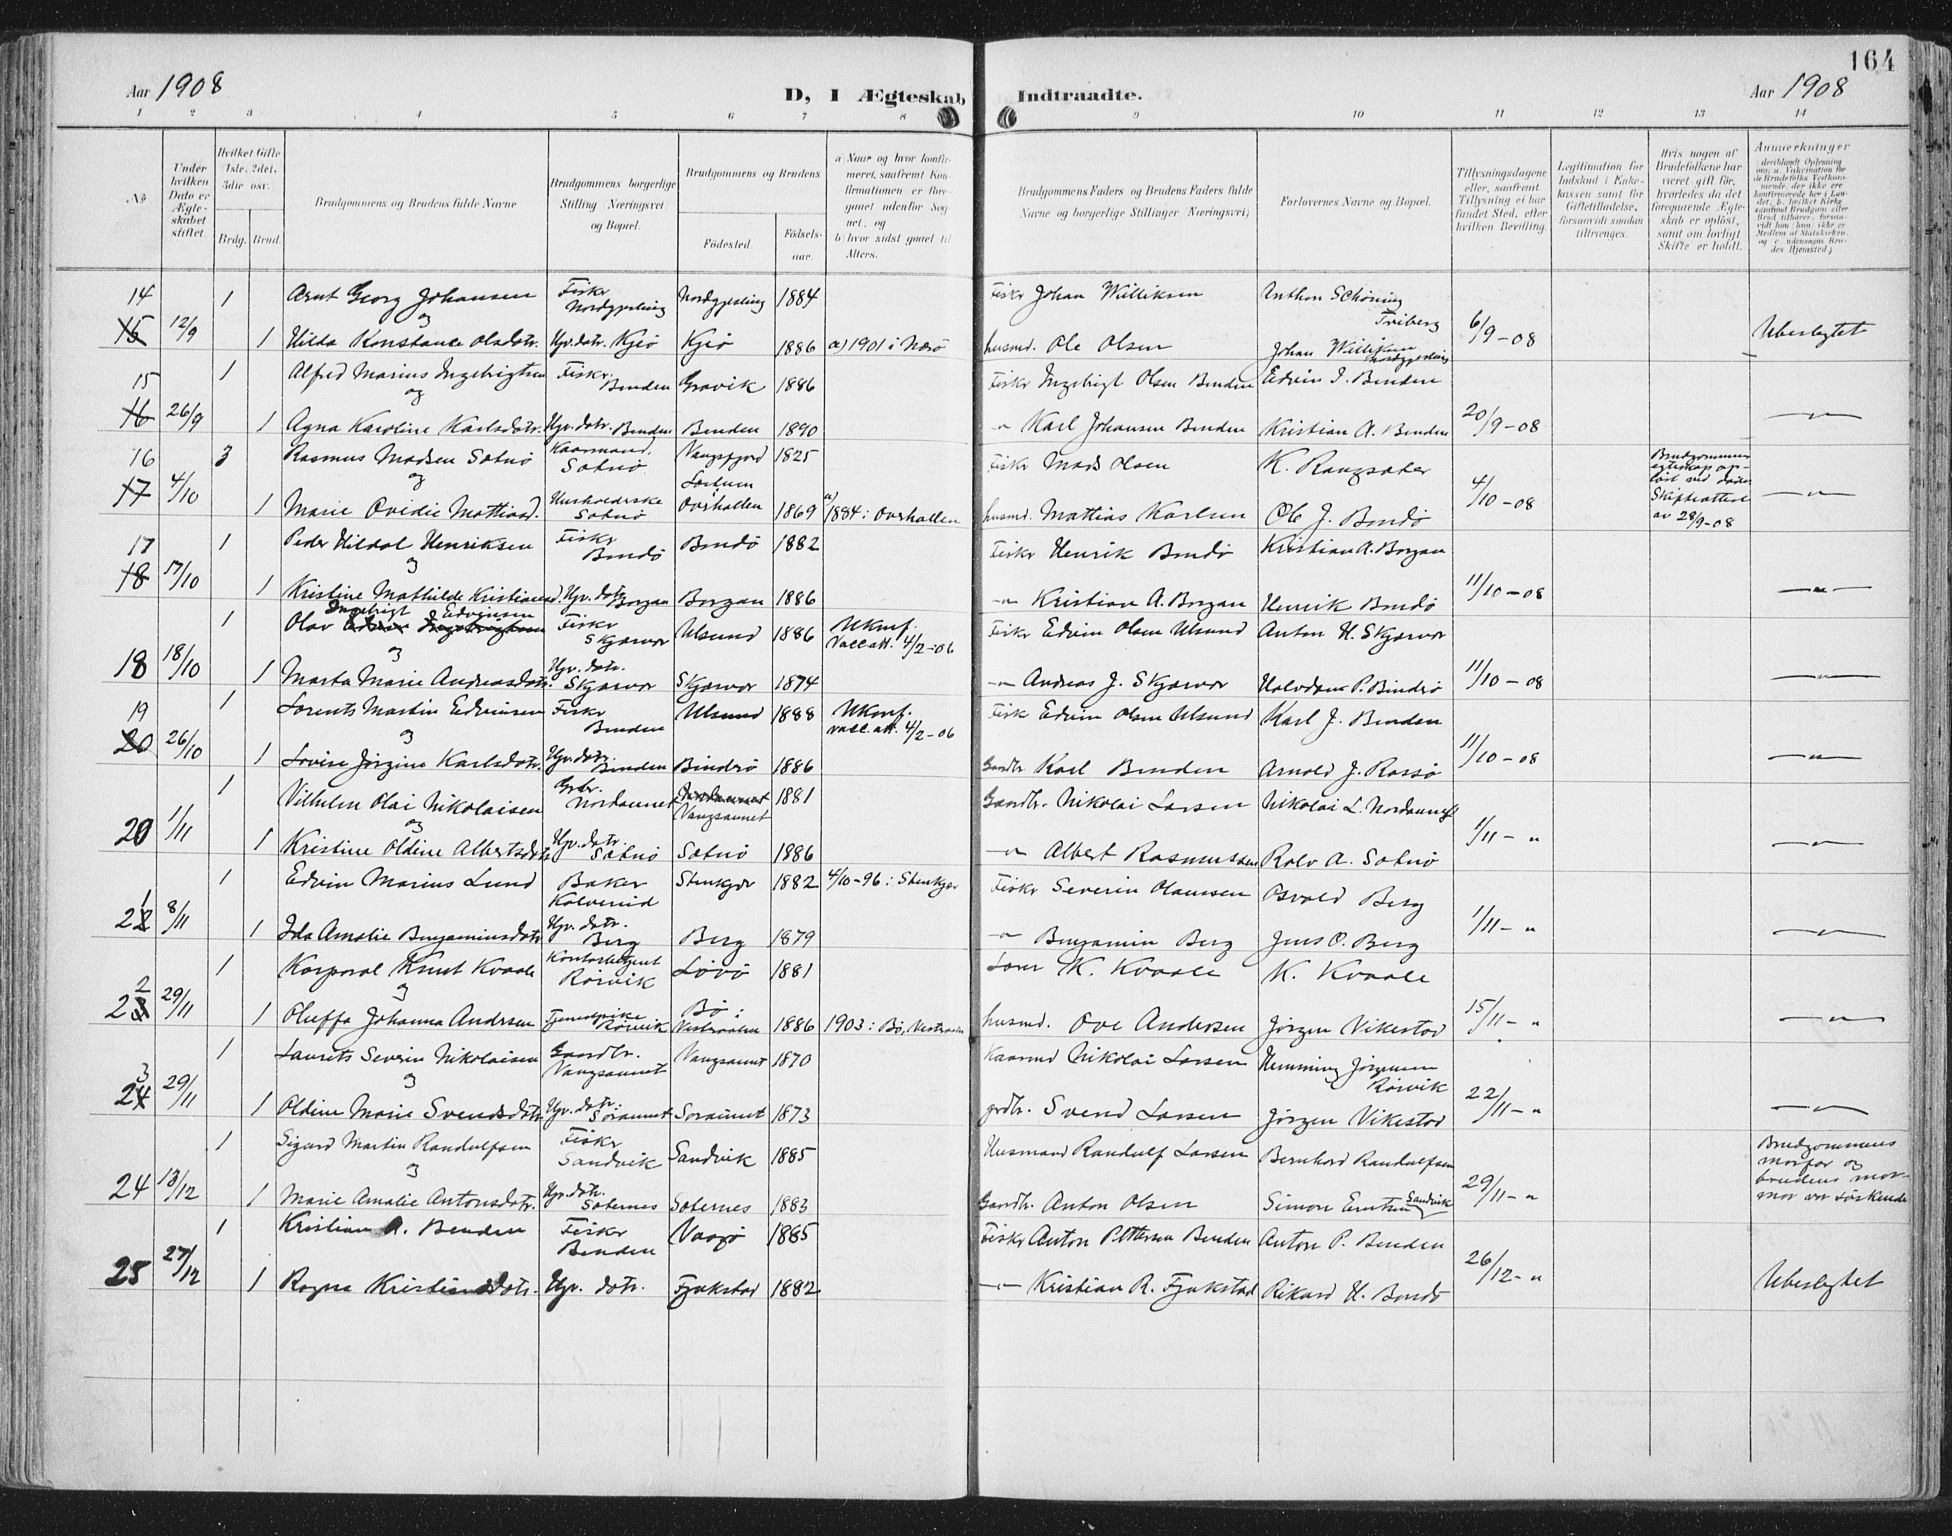 164
Aar 1908
D, I Ægteskab Indtraadte.
Aar 1908
1 2 3 4 5 6 7 8 9 10 11 12 13 14
No
Under hvilken Dato er Ægteskabet stiftet.
Hvilket Gifte 1ste. 2det. 3die osv.
Brdg. Brud.
Brudgommens og Brudens fulde Navne
Brudgommens borgerlige Stilling Næringsvei og Bopæl.
Brudgommens og Brudens
Fødested.
Fødselsaar.
a) Naar og hvor konfirmeret, saafremt Konfirmationen er foregaaet udenfor Sognet, og b) hvor sidst gaaet til Alters.
Brudgommens Faders og Brudens Faders fulde Navne og borgerlige Stillinger Næringsvei;
Forlovernes Navne og Bopæl.
Tillysningsdagene eller, saafremt Tillysning ei har fundet Sted, efter hvilken Bevilling.
Legitimation for Indskud i Enkekassen samt for Giftetilladelse, forsaavidt saadan tiltrænges.
Hvis nogen af Brudefolkene har været gift før, hvorledes da det foregaaende Ægteskab er opløst, samt om lovligt Skifte er holdt.
Anmærkninger
14 1 Arnt Georg Johansen Fisker Nordgjeslingg Nordgjesling 1884 Fisker Johan Williksen Anthon Schöning Friberg
og
15 12/9 1 Hilda Konstance Olsdotr. Hjv. dotr. Kjeö Kjeö 1886 a) 1901 i Nærö husmd. Ole Olsen Johan Williksen Nordgjesling 6/9-08 Ubeslegtet
15 1 Alfred Marius Ingebrigtsen Fisker Benden Gravik 1886 Fisker Ingebrigt Olsen Benden Edvin I. Benden
og
16 26/9 1 Agna Karoline Karlsdotr. Hjv. dotr. Benden Benden 1890 -"- Karl Johansen Benden Kristian A. Benden 20/9-08 -"-
16 3 Rasmus Madsen Sotnö Kaarmand. Sotnö Vangsfjord 1825 Fisker Mads Olsen K. Rangsæter
og
17 4/10 1 Marie Ovidie Mattiasd. Husholderske Sotnö Overhallen 1869 a) 1884 i Overhallen husmd. Mattias Karlsen Ole J. Bondö 4/10-08 -"-
Skifteattest av 28/9-08
17 1 Peder Hildal Henriksen Fisker Bondö Bondö 1882 Fisker Henrik Bondö Kristian A. Borgan
og
18 17/10 1 Kristine Mathilde Kristiansd. Hjv. dotr. Borgan Borgan 1886 -"- Kristian A. Borgan Henrik Bondö 11/10-08 -"-
1 Olav Ingebrigt Edvinsen Fisker Skjærvær Ulsund 1886 Ukonf. Vacc att. 4/2-06 Fisker Edvin Olsen Ulsund Anton H. Skjærvær
og
18 18/10 1 Marta Marie Andreasdotr. Hjv. dotr. Skjærvær Skjærvær 1874 -"- Andreas J. Skjærvær Halvdan P. Bindrö 11/10-08 -"-
19 1 Lorents Martin Edvinsen Fisker Benden Ulsund 1888 Ukonf. vacc. att. 4/2-06 Fisk Edvin Olsen Ulsund Karl J. Benden
og
20 26/10 1 Lovise Jörgine Karlsdotr. Hjv. dotr. Benden Bindrö 1886 Gaardbr Karl Benden Arnold J. Rossö 11/10-08 -"-
1 Vilhelm Olai Nikolaisen Gbr. Nordaunet Vangsaunet 1881 Gaardbr. Nikolai Larsen Nikolai L. Nordaunet
og
20 1/11 1 Kristine Oldine Albertsdotr. Hjv. dotr. Sotnö Sotnö 1886 -"- Albert Rasmussen Rolv A. Sotnö 1/11-" -"-
1 Edvin Marius Lund Baker Kolvereid Stenkjer 1882 4/10-96 i Stenkjer Fisker Severin Olaussen Osvald Berg
21 8/11 1 Ida Amalie Benjaminsdotr Hjv. dotr. Berg Berg 1879 -"- Benjamin Berg Jens O. Berg 1/11-" -"-
1 Korporal Knut Kvaale Kontorbetjent Rörvik Lövö 1881 K. Kvaale K. Kvaale
og
22 29/11 1 Oluffa Johanna Andersen Tjenestpike Rörvik Bö i Vesteraalen 1886 1903 i Bö, Vesteraalen husmd. Ove Andersen Jörgen Vikestad 15/11-" -"-
1 Laurits Severin Nikolaisen Gaardbr. Vangsaunet Vangsaunet 1870 Kaarmd Nikolai Larsen Hemming Jörgensen Rörvik
og
23 29/11 1 Oldine Marie Svendsdotr Hjv. dotr. Soraunet Soraunet 1873 grdbr. Svend Larsen Jörgen Vikestad 22/11-" -"-
1 Sigurd Martin Randulfsen Fisker Sandvik Sandvik 1885 Husmand Randulf Larsen Bernhard Randulfsen Brudgommens morfar og brudens mormor var söskende
og
24 13/12 1 Marie Amalie Antonsdotr. Hjv. dotr. Soternes Soternes 1883 Gaardbr. Anton Olsen Simon Erntsen Sandvik 29/11-"
1 Kristian A. Benden Fisker Benden Vaagö 1885 Fisker Anton Pettersen Benden Anton P. Benden
25 27/12 1 Ragna Kristiansdotr. Hjv. dotr. Fjukstad 1882 -"- Kristian R. Fjukstad Rikard H. Bondö 26/12-" Ubeslegtet